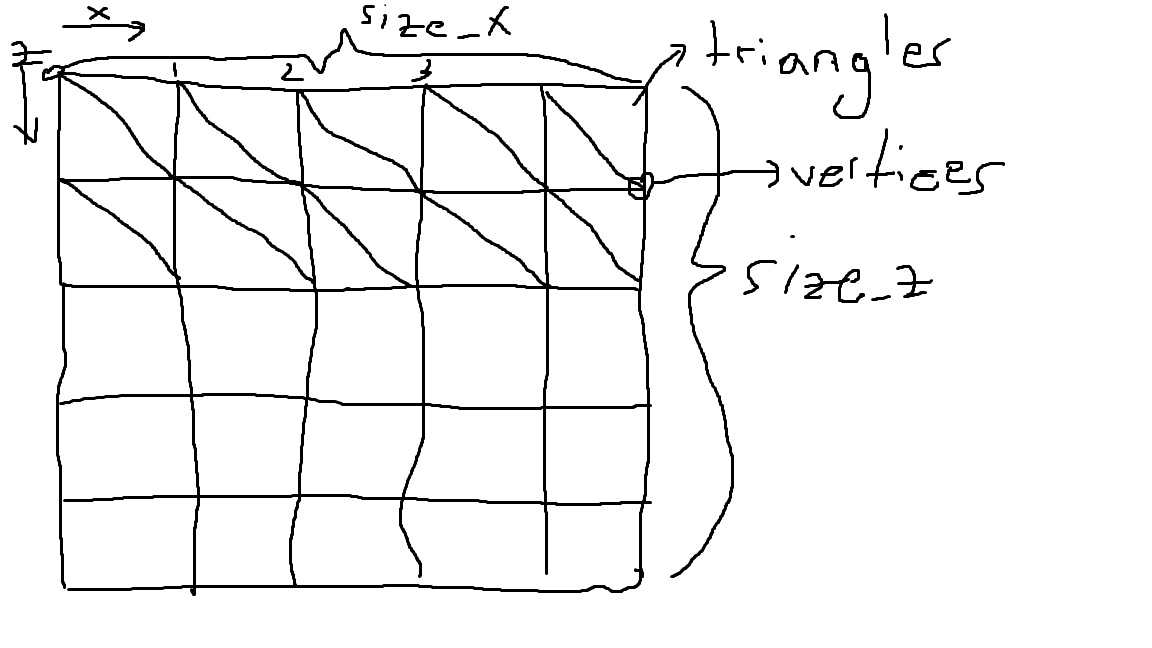 x
size_x
z
1 2 3
triangles
vertices
size_z